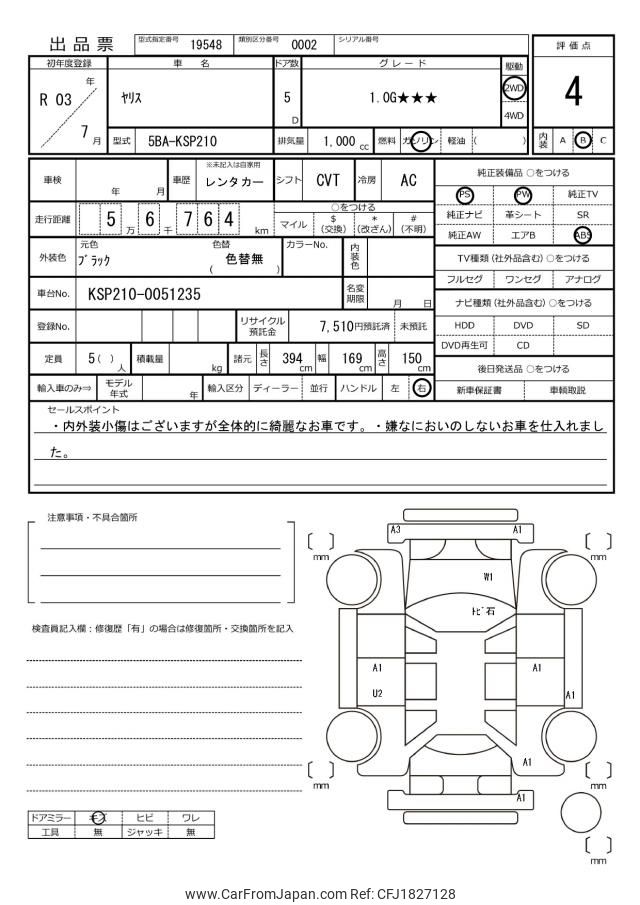 出品票
型式指定番号 19548 類別区分番号 0002 シリアル番号
評価点
4
初年度登録 車名 ドア数 グレード 駆動
R 03 年 7 月
ヤリス 5 D 1.0G★★★ 2WD 4WD
型式 5BA-KSP210 排気量 1,000 cc 燃料 ガソリン 軽油 ( )
内装 A B C
車検 年 月 車歴 ※未記入は自家用 レンタカー シフト CVT 冷房 AC
走行距離 5 万 6 千 7 6 4 km
○をつける
マイル $ (交換) * (改ざん) # (不明)
外装色 元色 ブラック 色替 ( 色替無 ) カラーNo. 内装色
車台No. KSP210-0051235 名変期限 月 日
登録No. リサイクル預託金 7,510円預託済 未預託
定員 5( ) 人 積載量 kg 諸元 長さ 394 cm 幅 169 cm 高さ 150 cm
輸入車のみ⇒ モデル年式 年 輸入区分 ディーラー 並行 ハンドル 左 右
純正装備品 ○をつける
PS PW 純正TV
純正ナビ 革シート SR
純正AW エアB ABS
TV種類 (社外品含む) ○をつける
フルセグ ワンセグ アナログ
ナビ種類 (社外品含む) ○をつける
HDD DVD SD
DVD再生可 CD
後日発送品 ○をつける
新車保証書 車輌取説
セールスポイント
・内外装小傷はございますが全体的に綺麗なお車です。・嫌なにおいのしないお車を仕入れまし
た。
注意事項・不具合箇所
検査員記入欄：修復歴「有」の場合は修復箇所・交換箇所を記入
ドアミラー キズ ヒビ ワレ
工具 無 ジャッキ 無
A3 A1
〔 〕 mm 〔 〕 mm
W1
トビ石
A1 A1
U2 A1
A1
〔 〕 mm 〔 〕 mm
A1
〔 〕 mm
www.CarFromJapan.com Ref: CFJ1827128